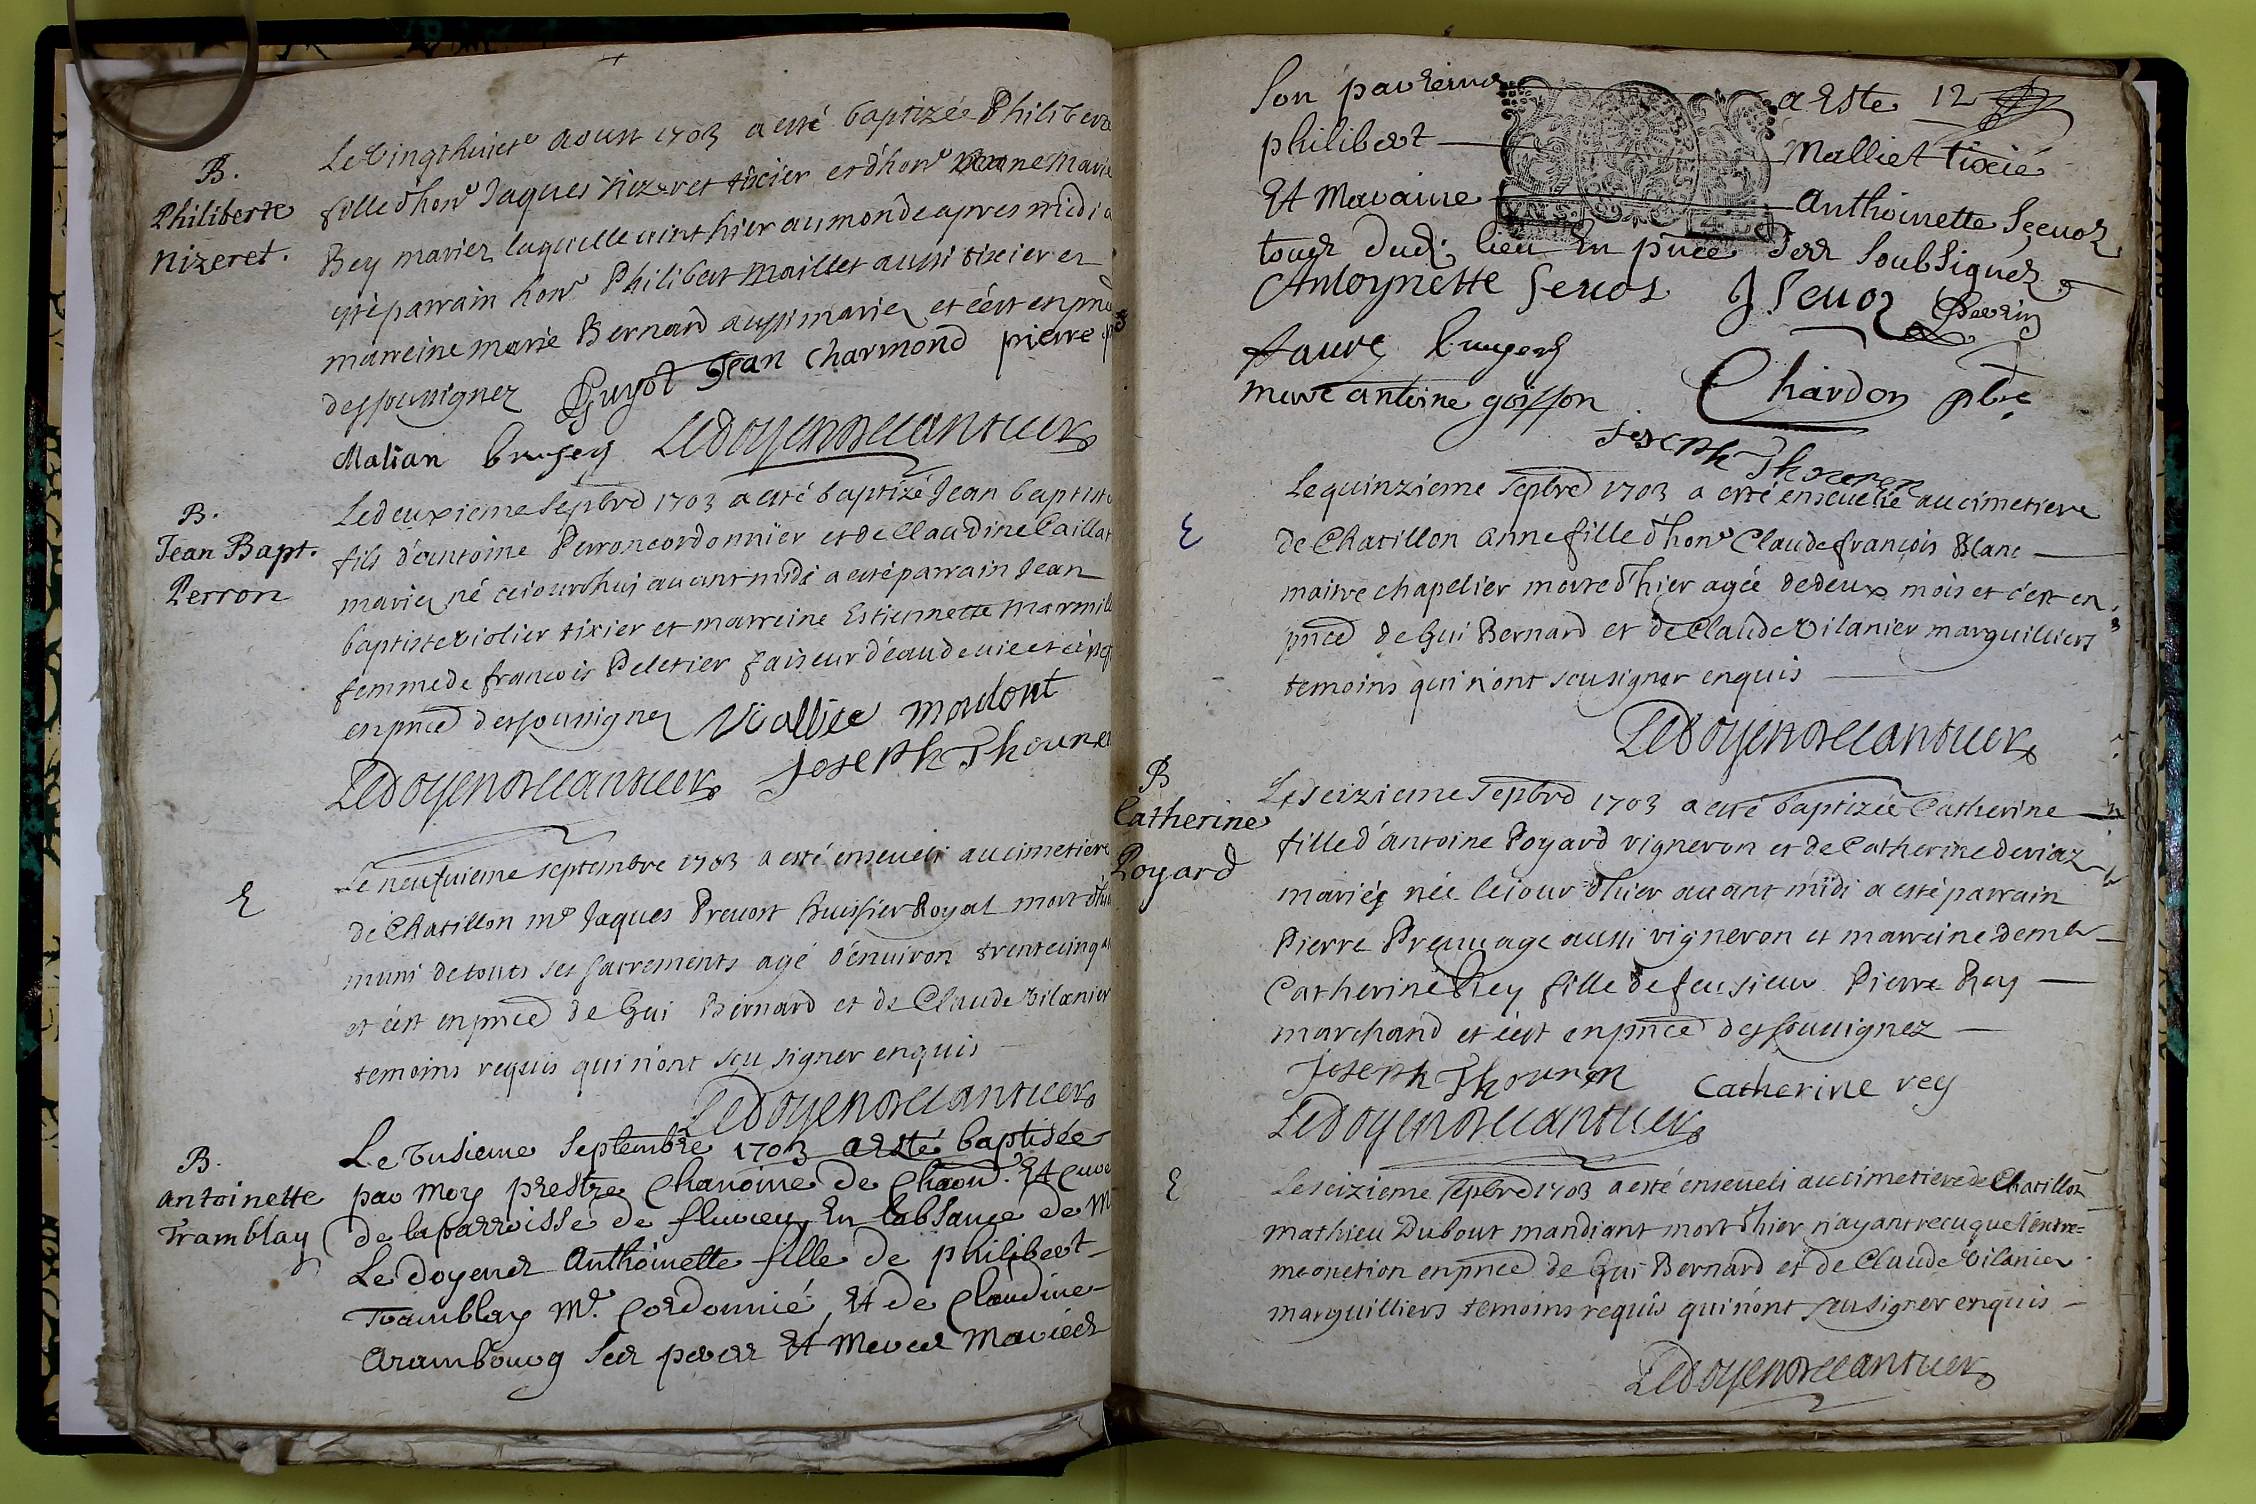 B.
Philiberte
Nizeret.
Le vingthuict.e aoust 1703 a esté baptizée Philiberte
fille d'hon.e Jaques Nizeret tixier et d'hon.e Marie
Bey mariez laquelle vint hier au monde apres midi a
esté parrain hon.e Philibert Maillet aussi tixier et
marreine marie Bernard aussi mariez et c'est en pñce
dessoussignez Guyot Jean Charmond pierre
Malian brugey Ledoyen De Cantuer
B.
Jean Bapt.
Perron
Le deuxieme Septbre 1703 a esté baptizé Jean baptiste
fils d'antoine Perron cordonnier et de Claudine Caillat
mariez né cejourdhuj auant midi a esté parrain Jean
baptiste violier tixier et marreine Estiennette Marmill
femme de francois Peletier faiseur d'eau de vie et c'est
en pñce dessoussignez Viallier mordont
Ledoyen De Cantuer Joseph Thouren
E
Le neufuieme septembre 1703 a esté enseueli au cimetiere
de Chatillon m.e Jaques Preuost huissier Royal mort d'hier
muni de touts ses sacrements agé d'enuiron trentecinq
et c'est en pñce de Gui Bernard et de Claude Vilanier
temoins requis qui n'ont sçu signer enquis
Ledoyen De Cantuer
B.
Antoinette
Tramblay
Le Vnsieme Septembre 1703 a esté baptisée
par moy prestre Chanoine de Chaon. Et Curé
de la parroisse de fluriey En labsance de M
Le doyenez Anthoinette fille de philibert
Tramblay M.e Cordonnié, Et de Claudine
Arambourg ses peres Et meres mariéz
Son parreinez a este 12
philibert Malliet tixié
Et Maraine Anthoinette Seçuoz
tous dud. lieu En pñce des Soubsignez
Antoynette Seuos J Seuoz Perrin
faure brugey
marc antoine goiffon Chardon pbre
Joseph Thouren
E
Le quinzieme Septbre 1703 a esté enseuelie au cimetiere
de Chatillon Anne fille d'hon.e Claude françois Blanc
maitre chapelier morte d'hier agée de deux mois et c'est en
pñce de Gui Bernard et de Claude Vilanier marguilliers
temoins qui n'ont scu signer enquis
Ledoyen De Cantuer
B
Catherine
Poyard
Le seizieme Septbre 1703 a esté baptizée Catherine
fille d'antoine Poyard vigneron et de Catherine deviaz
mariés née le jour d'hier auant midi a esté parrain
Pierre Preauage aussi vigneron et marreine dem.lle
Catherine Rey fille de feu sieur Pierre Rey
marchand et c'est en pñce dessoussignez
Joseph Thouren Catherine rey
Ledoyen De Cantuer
E
Le seizieme Septbre 1703 a esté enseueli au cimetiere de Chatillon
Mathieu Dubout mandiant mort d'hier n'ayant recu que l'extre=
me onction en pñce de Gui Bernard et de Claude Vilanier
marguilliers temoins requis qui n'ont scu signer enquis
Ledoyen De Cantuer